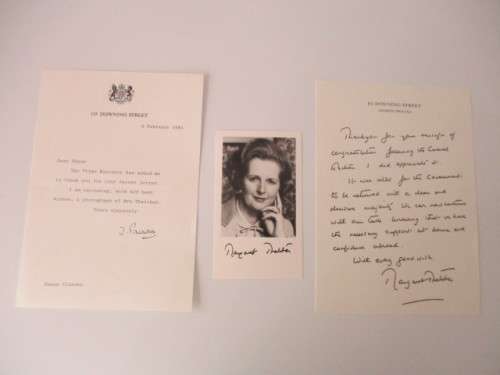 10 DOWNING STREET
9 February 1981
The Prime Minister has asked me
to thank you for your recent letter.
I am enclosing, with her best
wishes, a photograph of Mrs Thatcher.
Yours sincerely
Margaret Thatcher
10 DOWNING STREET
Thank you for your message of
congratulations following the General
Election. I did appreciate it.
It was vital for the Conservatives
to be returned with a clear and
decisive majority. We can now continue
with our task knowing that we have
the necessary support at home and
confidence abroad.
With every good wish,
Margaret Thatcher